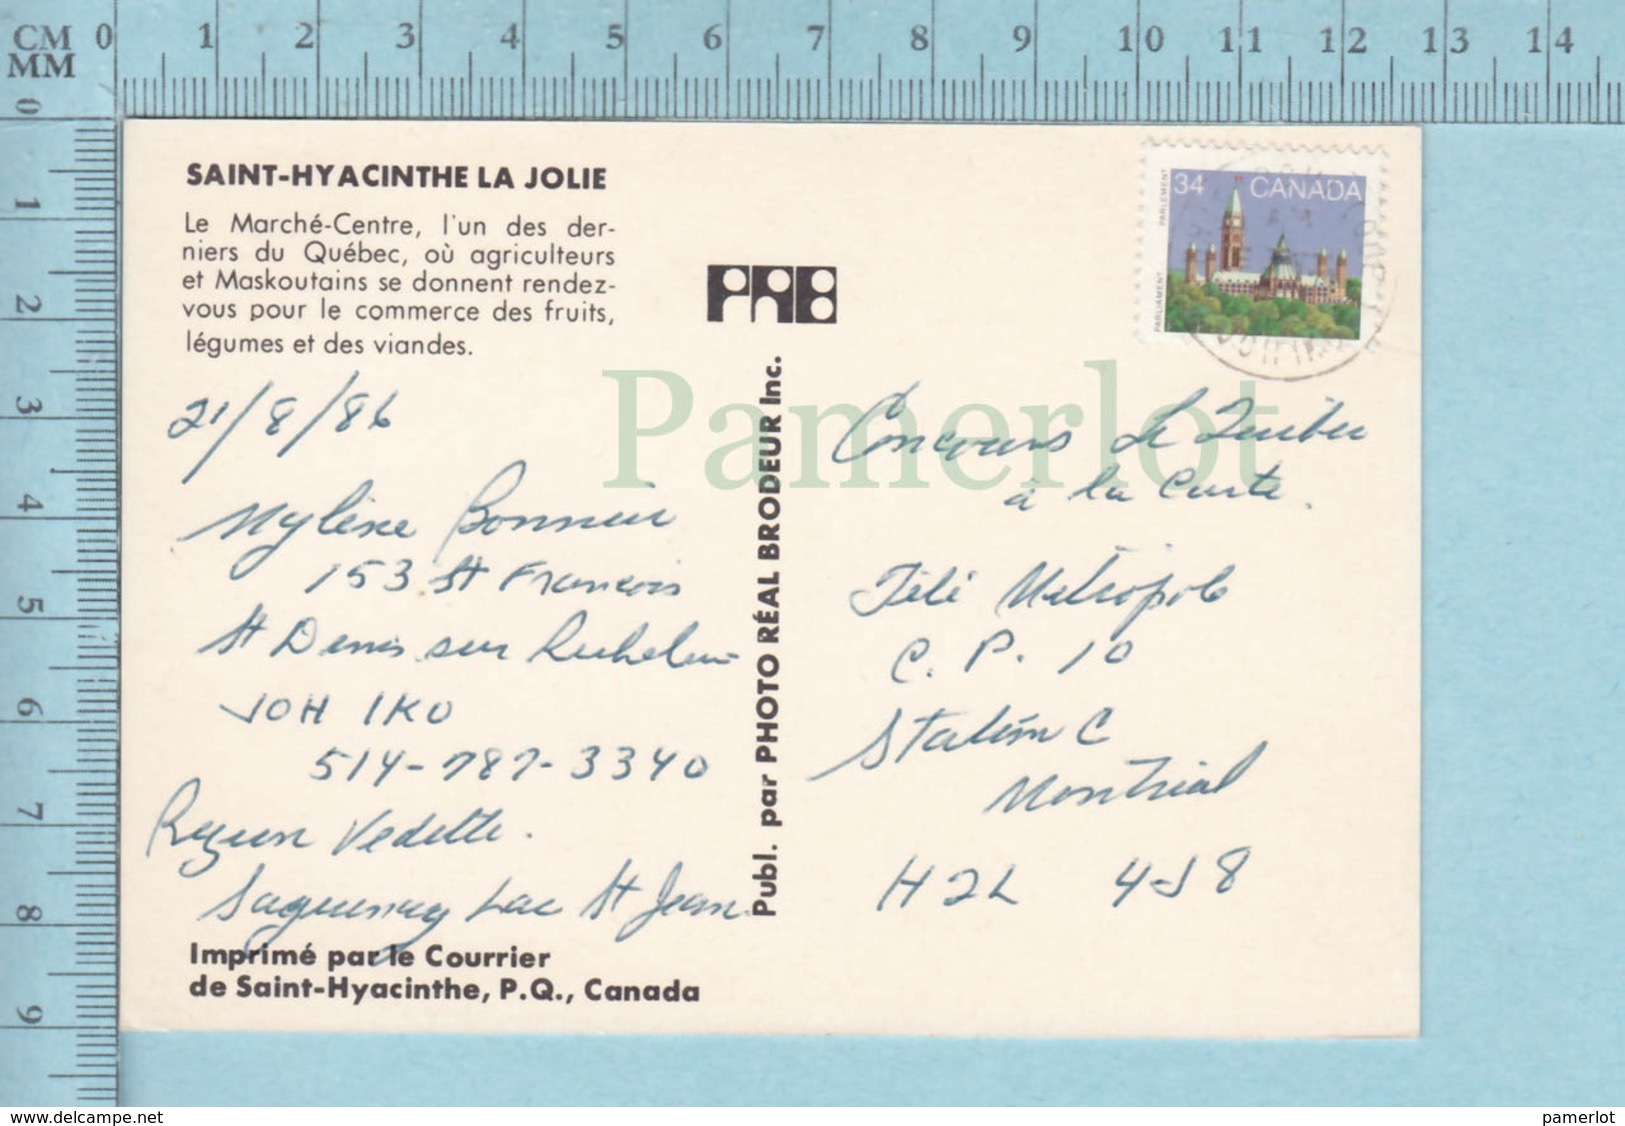 CM 0 1 2 3 4 5 6 7 8 9 10 11 12 13 14
MM
0
1
2
3
4
5
6
7
8
9
SAINT-HYACINTHE LA JOLIE
Le Marché-Centre, l'un des der-
niers du Québec, où agriculteurs
et Maskoutains se donnent rendez-
vous pour le commerce des fruits,
légumes et des viandes.
21/8/86
Mylène Bonnier
153 St François
St Denis sur Richelieu
J0H 1K0
514-787-3340
Region Vedette.
Saguenay Lac St Jean
Imprimé par le Courrier
de Saint-Hyacinthe, P.Q., Canada
PRB
Publ. par PHOTO RÉAL BRODEUR Inc.
34 CANADA
PARLIAMENT PARLEMENT
Pamerlot
Concours Le Timbre
à la Carte.
Télé Metropole
C. P. 10
Station C
Montreal
H2L 4J8
www.delcampe.net
pamerlot